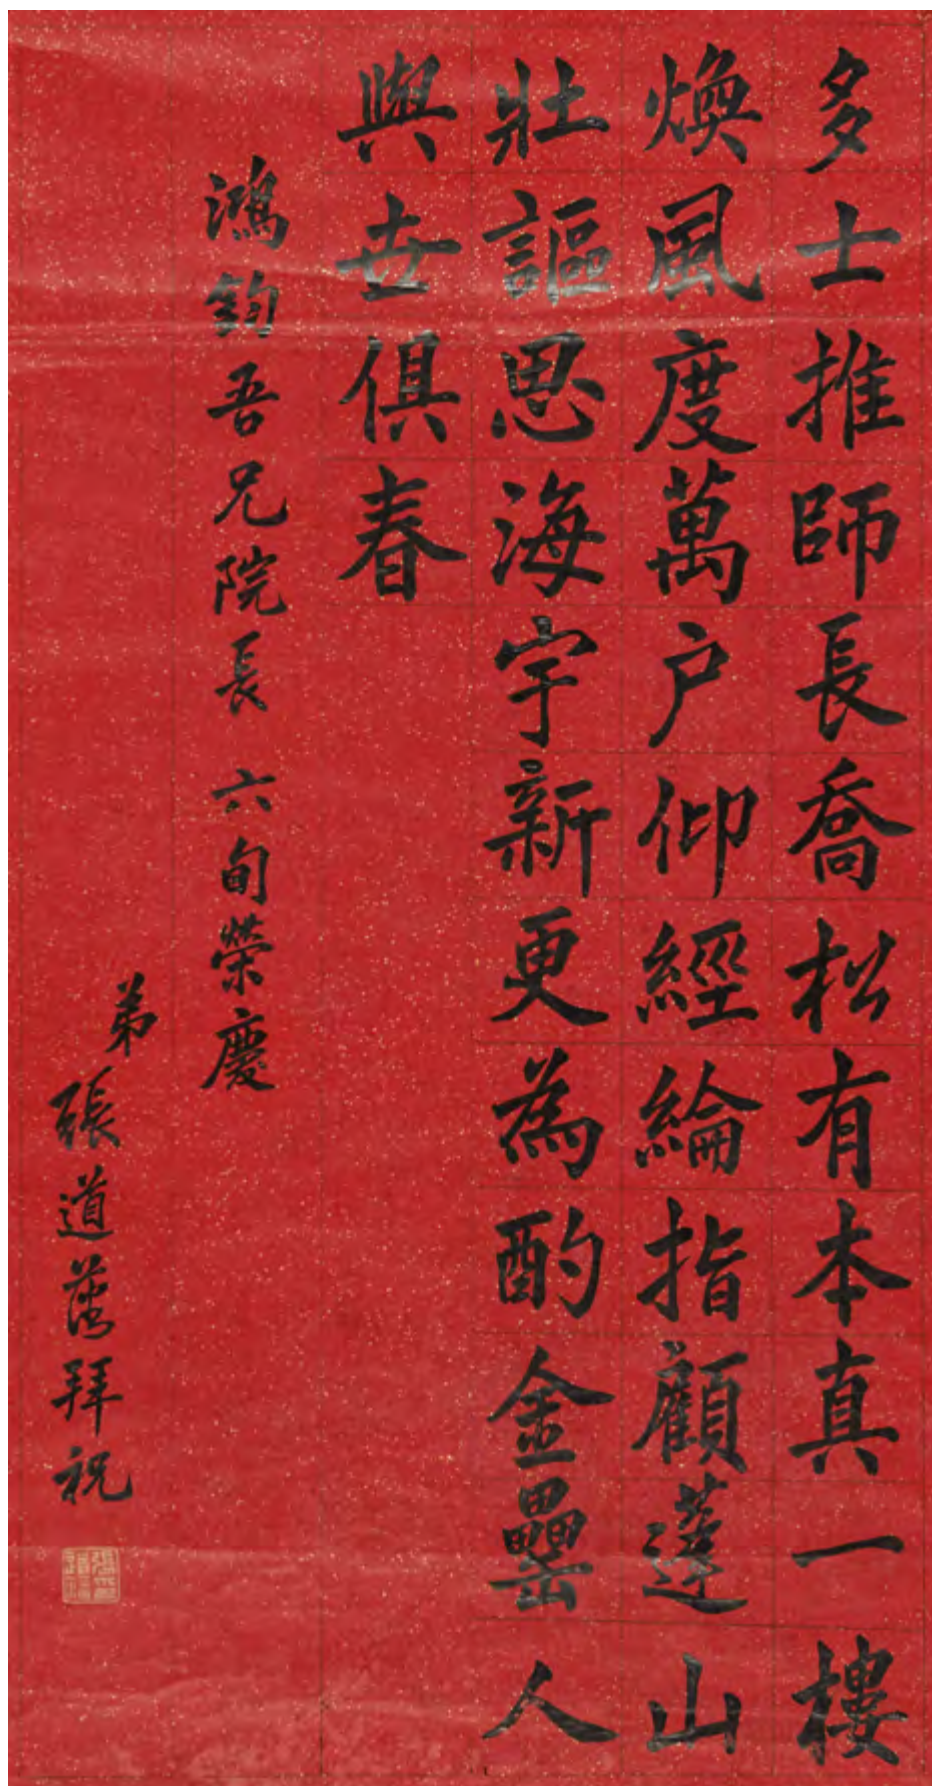 多士推師長喬松有本真一樓
煥風度萬户仰經綸指顧蓬山
壯謳思海宇新更為酌金罍人
與世俱春
鴻鈞吾兄院長 六旬榮慶
弟張道藩拜祝